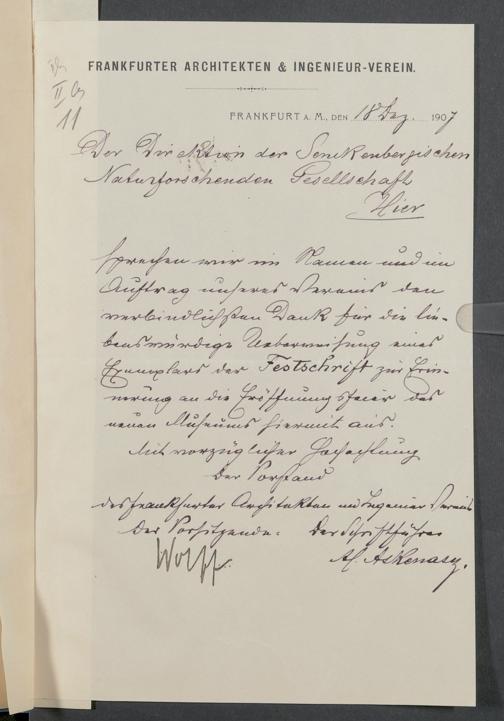 II
11
FRANKFURTER ARCHITEKTEN & INGENIEUR-VEREIN.
FRANKFURT A. M., DEN 18 Dez. 1907
Der Direktion der Senckenbergischen
Naturforschenden Gesellschaft
Hier
sprechen wir im Namen und im
Auftrag unseres Vereins den
verbindlichsten Dank für die lie-
benswürdige Ueberweisung eines
Exemplars der Festschrift zur Erin-
nerung an die Eröffnungsfeier des
neuen Museums hiermit aus.
Mit vorzüglicher Hochachtung
Der Vorstand
des Frankfurter Architekten und Ingenieur Vereins
Der Vorsitzende: Der Schriftführer
Wolff. Al. Askenasy.